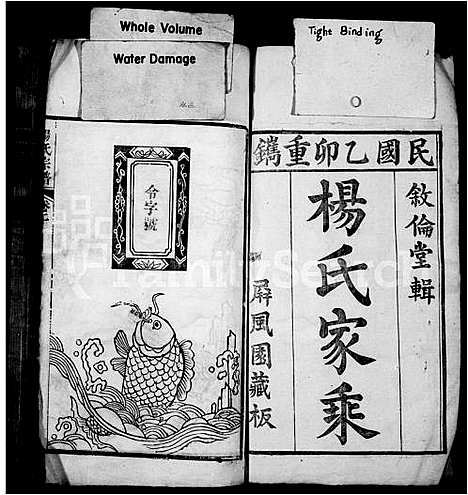 Whole Volume
Water Damage
Tight Binding
民國乙卯重鐫
敘倫堂輯
楊氏家乘
屏風園藏板
令字號
FamilySearch